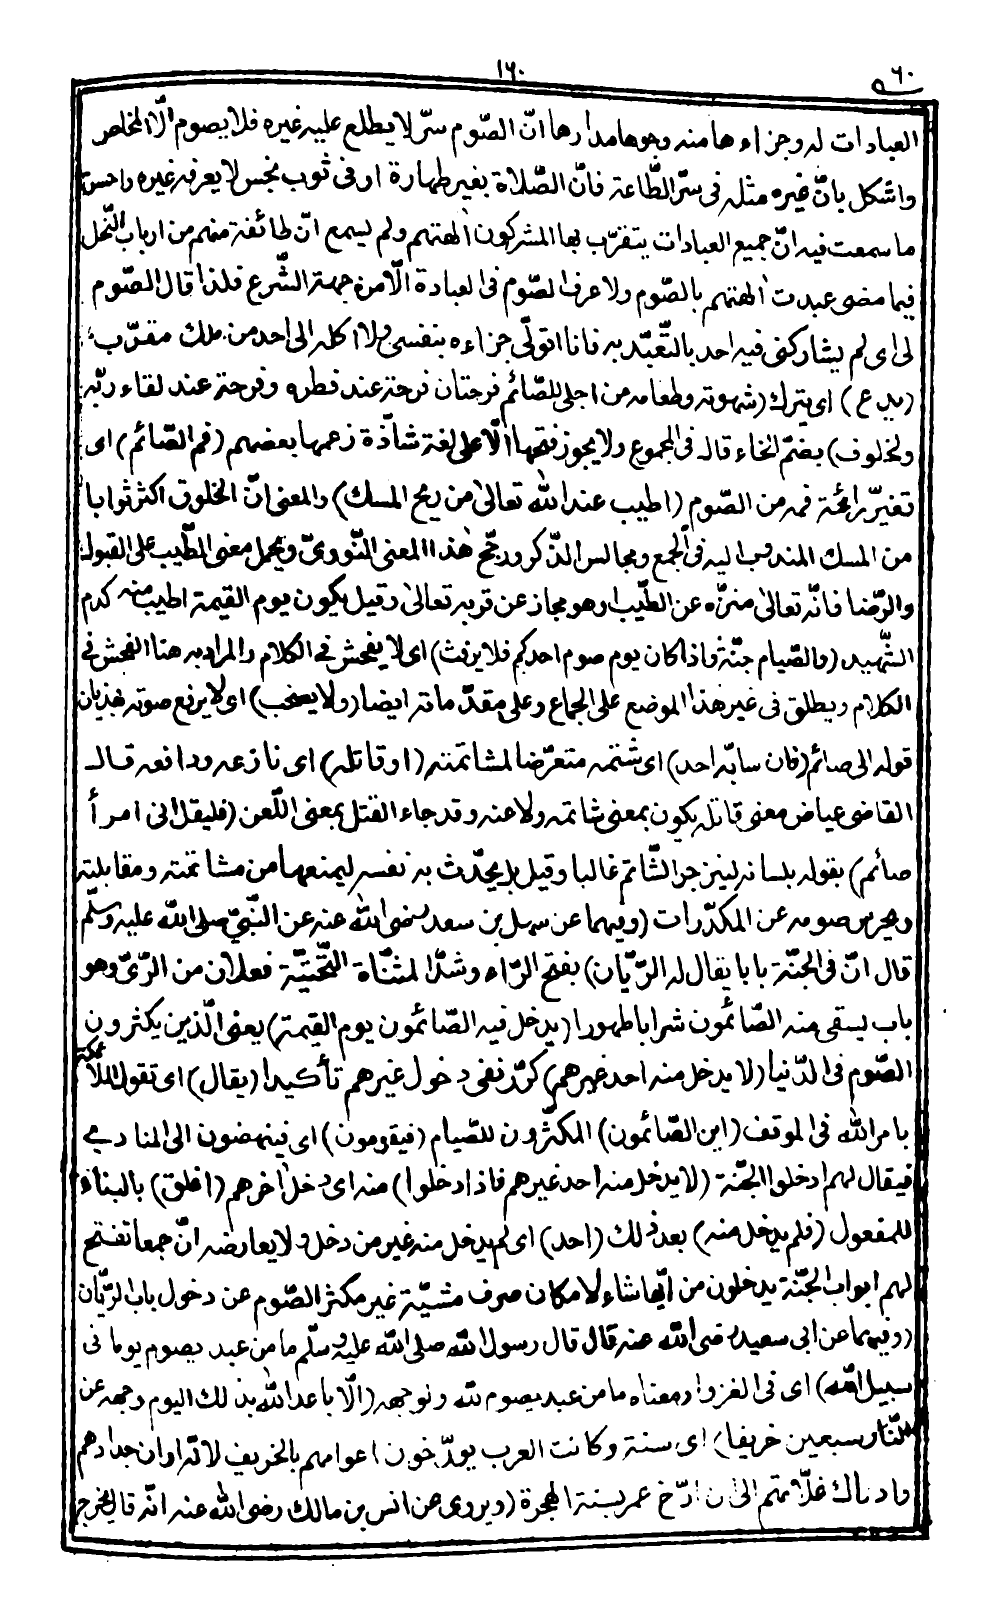 ١٦٠
٦٠
العبادات له وجزاءها منه وهو هامدارها انّ الصّوم سرّ لا يطلع عليه غيره فلا يصوم الّا المخلص
واشكل بانّ غيره مثله فى سرّ الطّاعة فانّ الصّلاة بغير طهارة او فى ثوب نجس لا يعرفه غيره واحسن
ما سمعت فيه انّ جميع العبادات يتقرّب بها المشركون اٰلهتهم ولم يسمع انّ طائفة منهم من ارباب النّحل
فيما مضى عبدت اٰلهتهم بالصّوم ولا عرف الصّوم فى العبادة الّا من جهة الشّرع فلذا قال الصّوم
لى اى لم يشاركنى فيه احد بالتّعبّد به فانا اتولّى جزاءه بنفسى ولا اكله الى احد من ملك مقرّب
(يدع) اى يترك (شهوته وطعامه من اجلى للصّائم فرحتان فرحة عند فطره وفرحة عند لقاء ربّه
ولخلوف) بضمّ الخاء قاله فى المجموع ولا يجوز فتحها الّا على لغة شاذّة زعمها بعضهم (فم الصّائم) اى
تغيّر رائحة فمه من الصّوم (اطيب عند الله تعالىٰ من ريح المسك) والمعنى انّ الخلوق اكثر ثوابا
من المسك المندوب اليه فى الجمع ومجالس الذّكر ورجّح هٰذا المعنى النّووىّ ويحمل معنى الطّيب على القبول
والرّضا فانّه تعالىٰ منزّه عن الطّيب وهو مجاز عن قربه تعالىٰ وقيل يكون يوم القيمة اطيب منه كدم
الشّهيد (والصّيام جنّة فاذا كان يوم صوم احدكم فلا يرفث) اى لا يفحش فى الكلام والمراد به هنا الفحش فى
الكلام ويطلق فى غير هٰذا الموضع على الجماع وعلى مقدّماته ايضا (ولا يصخب) اى لا يرفع صوته بهذيان
قوله الى صائم (فان سابّه احد) اى شتمه متعرّضا لمشاتمته (او قاتله) اى نازعه ودافعه قال
القاضى عياض معنى قاتله يكون بمعنى شاتمه ولاعنه وقد جاء القتل بمعنى اللّعن (فليقل انى امرأ
صائم) بقوله بلسانه لينزجر الشّاتم غالبا وقيل بل يحدّث به نفسه ليمنعها من مشاتمته ومقابلته
ويحرس صومه عن المكدّرات (وفيهما عن سهل بن سعد رضى الله عنه عن النّبىّ صلى الله عليه وسلّم
قال انّ فى الجنّة بابا يقال له الرّيّان) بفتح الرّاء وشدّ المثنّاة التّحتيّة فعلان من الرّىّ وهو
باب يسقى منه الصّائمون شرابا طهورا (يدخل فيه الصّائمون يوم القيمة) يعنى الّذين يكثرون
الصّوم فى الدّنيا (لا يدخل منه احد غيرهم) كرّر نفى دخول غيرهم تأكيدا (يقال) اى تقول الملائكة
بامر الله فى الموقف (اين الصّائمون) المكثّرون للصّيام (فيقومون) اى فينهضون الى المنادى
فيقال لهم ادخلوا الجنّة (لا يدخل منه احد غيرهم فاذا دخلوا) منه اى دخل اٰخرهم (اغلق) بالبناء
للمفعول (فلم يدخل منه) بعد ذلك (احد) اى لم يدخل منه غير من دخل ولا يعارضه انّ جمعا تفتح
لهم ابواب الجنّة يدخلون من ايّها شاء لامكان صرف مشيّة غير مكثر الصّوم عن دخول باب الرّيّان
(وفيهما عن ابى سعيد رضى الله عنه قال قال رسول الله صلى الله عليه وسلّم ما من عبد يصوم يوما فى
سبيل الله) اى فى الغزو او معناه ما من عبد يصوم لله ولوجهه (الّا باعد الله بذلك اليوم وجهه عن
النّار سبعين خريفا) اى سنة وكانت العرب يورّخون اعوامهم بالخريف لانّه اوان جدادهم
وادراك غلّاتهم الى ان ارّخ عمر بسنة الهجرة (ويروى عن انس بن مالك رضى الله عنه انّه قال يخرج